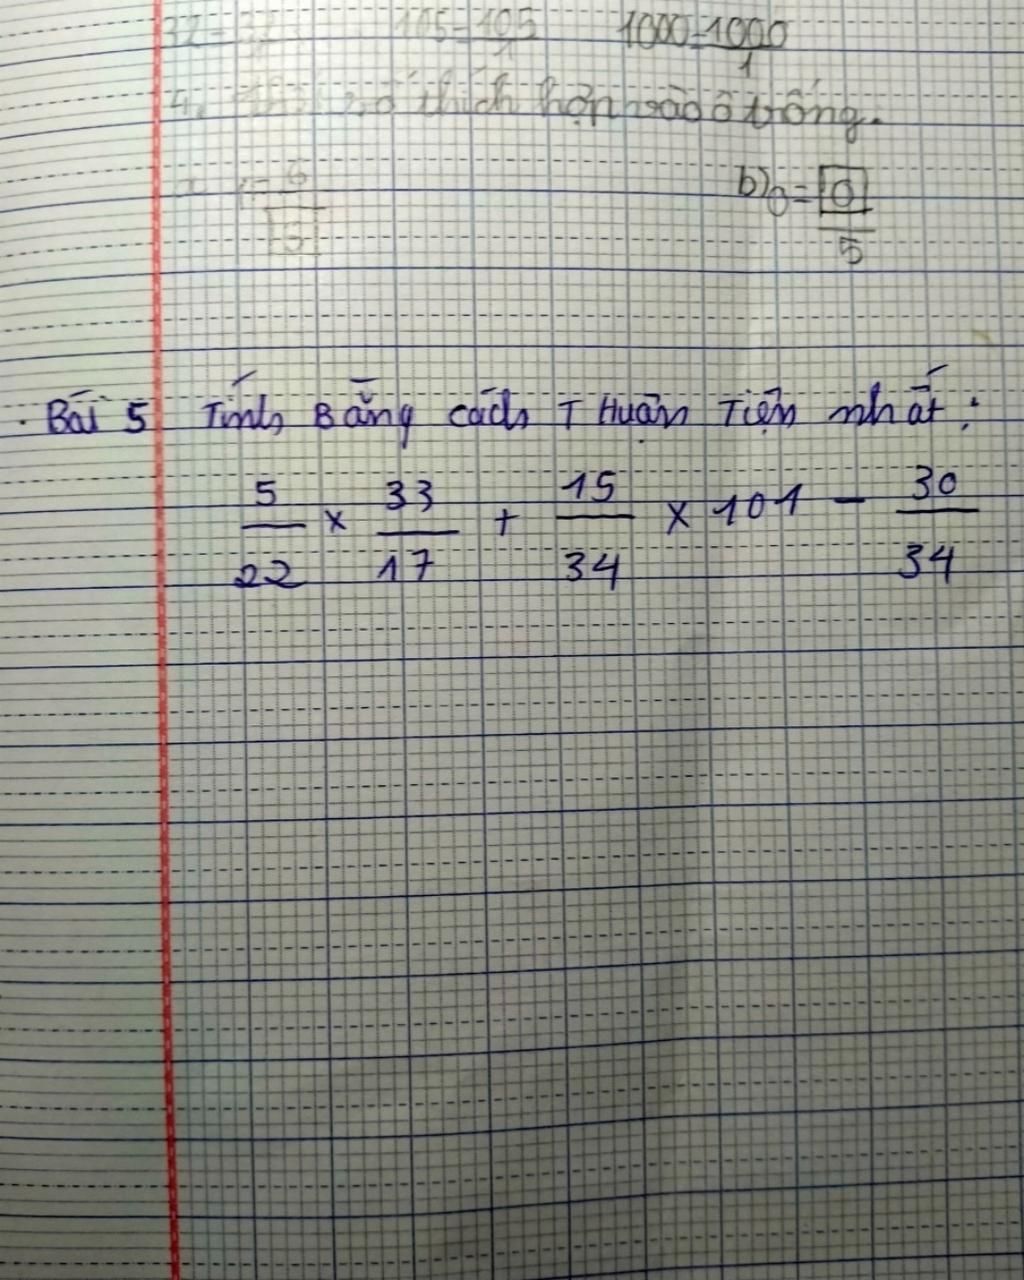 32 = 32 105 = 105 1000 = 1000
1 1
4. số thích hợp vào ô trống.
1 = 6 b) 0 = 0
5
Bài 5 Tính Bằng cách THuận Tiện nhất:
5 33 15 30
× + × 101 −
22 17 34 34